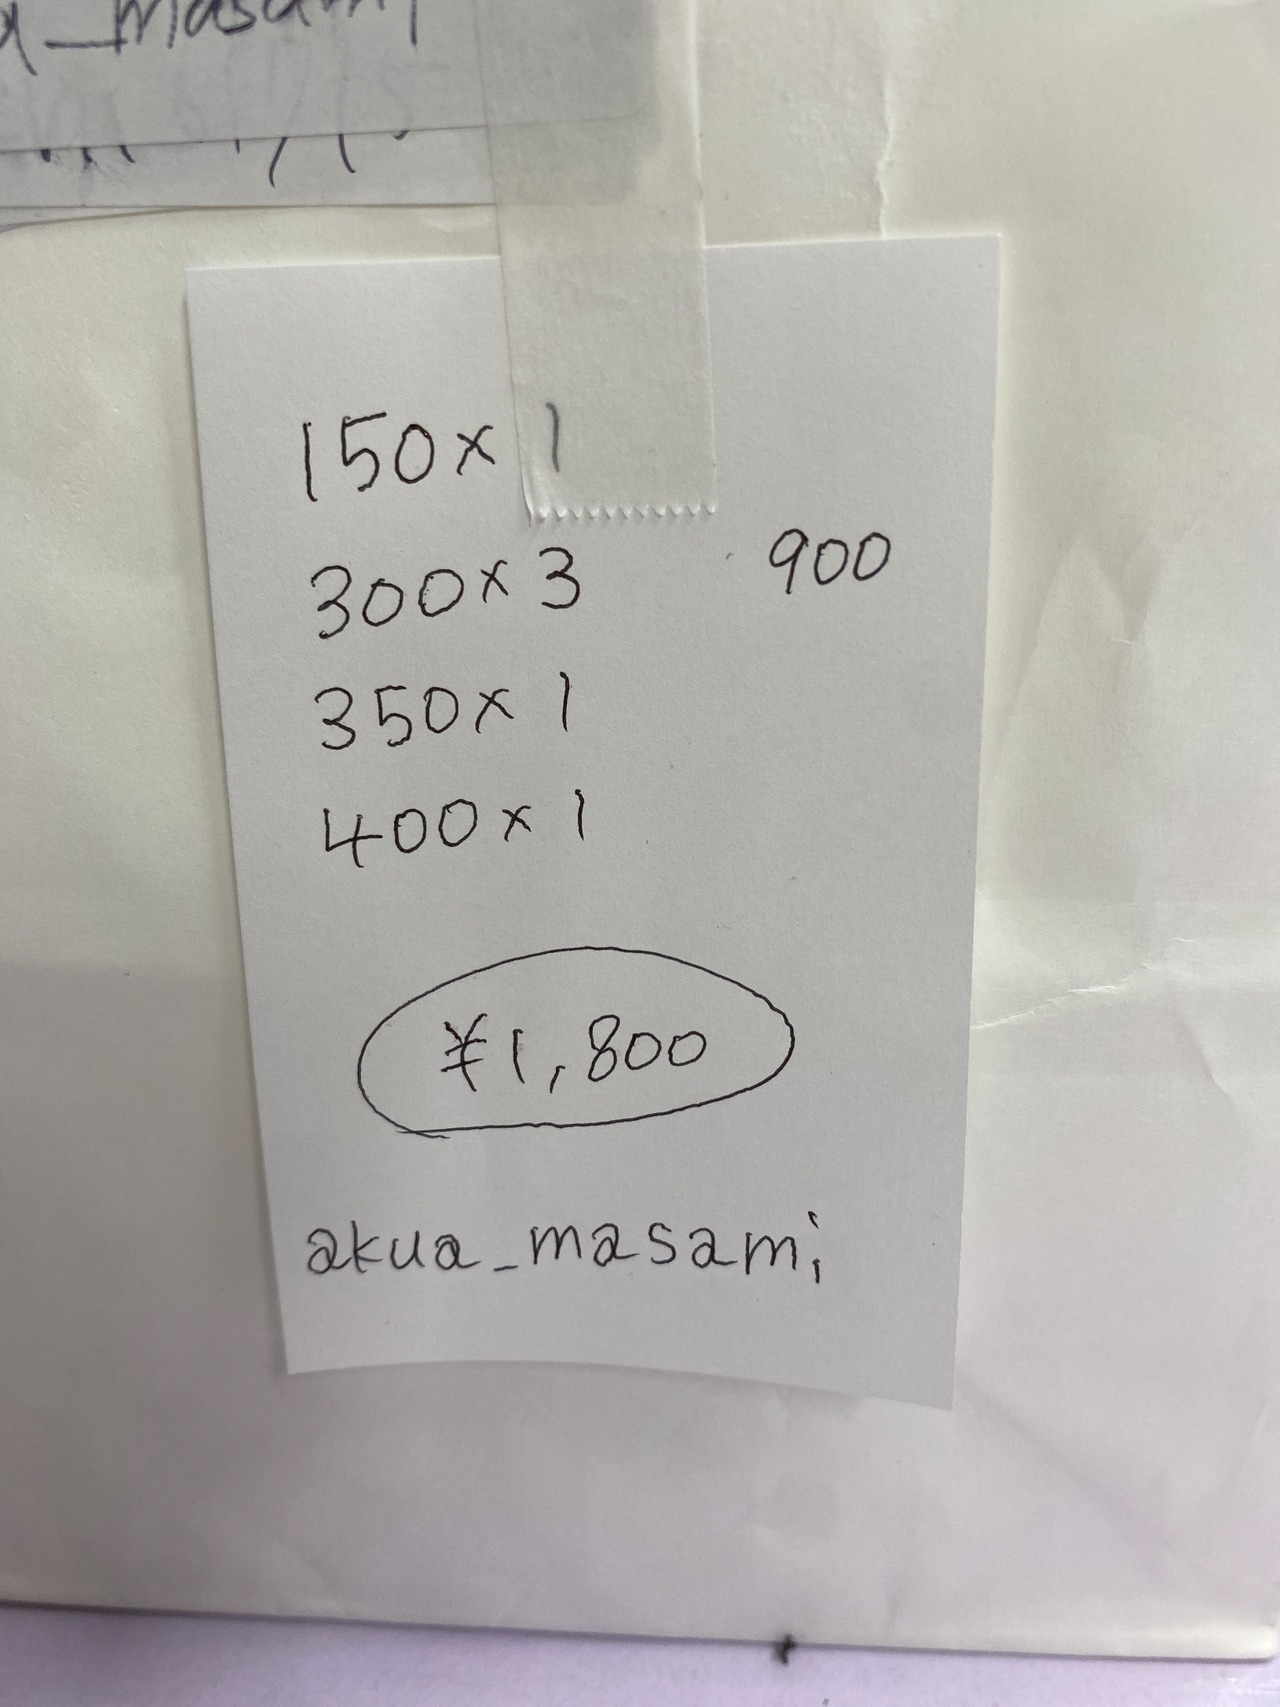 a_masami
150x 1
300x 3 900
350x 1
400x 1
¥1,800
akua_masami